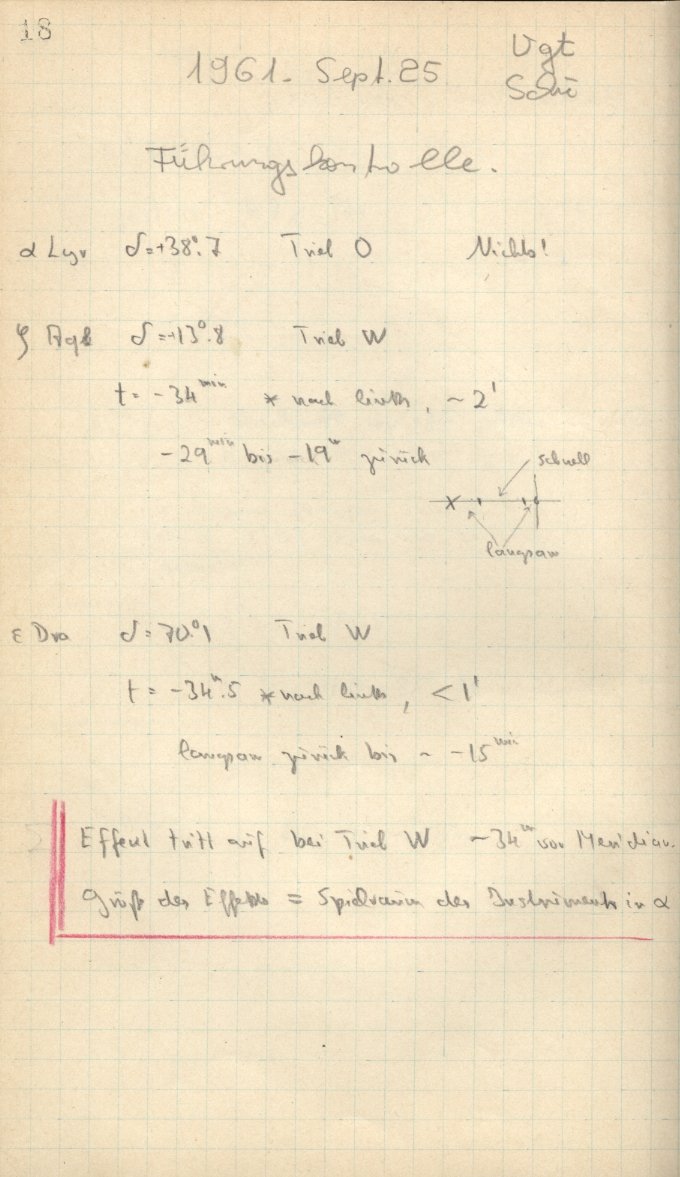 18
1961. Sept. 25
Vgt
Schü
Führungskontrolle.
α Lyr δ=+38°.7 Trieb O Nichts!
ζ Aql δ=+13°.8 Trieb W
t = -34 min * nach links, ~ 2'
-29 min bis -19 m zurück
schnell
langsam
ε Dra δ = 70°.1 Trieb W
t = -34 m.5 * nach links, < 1'
langsam zurück bis ~ -15 min
Effekt tritt auf bei Trieb W ~34 m vor Meridian.
Größe des Effekts = Spielraum des Instruments in α